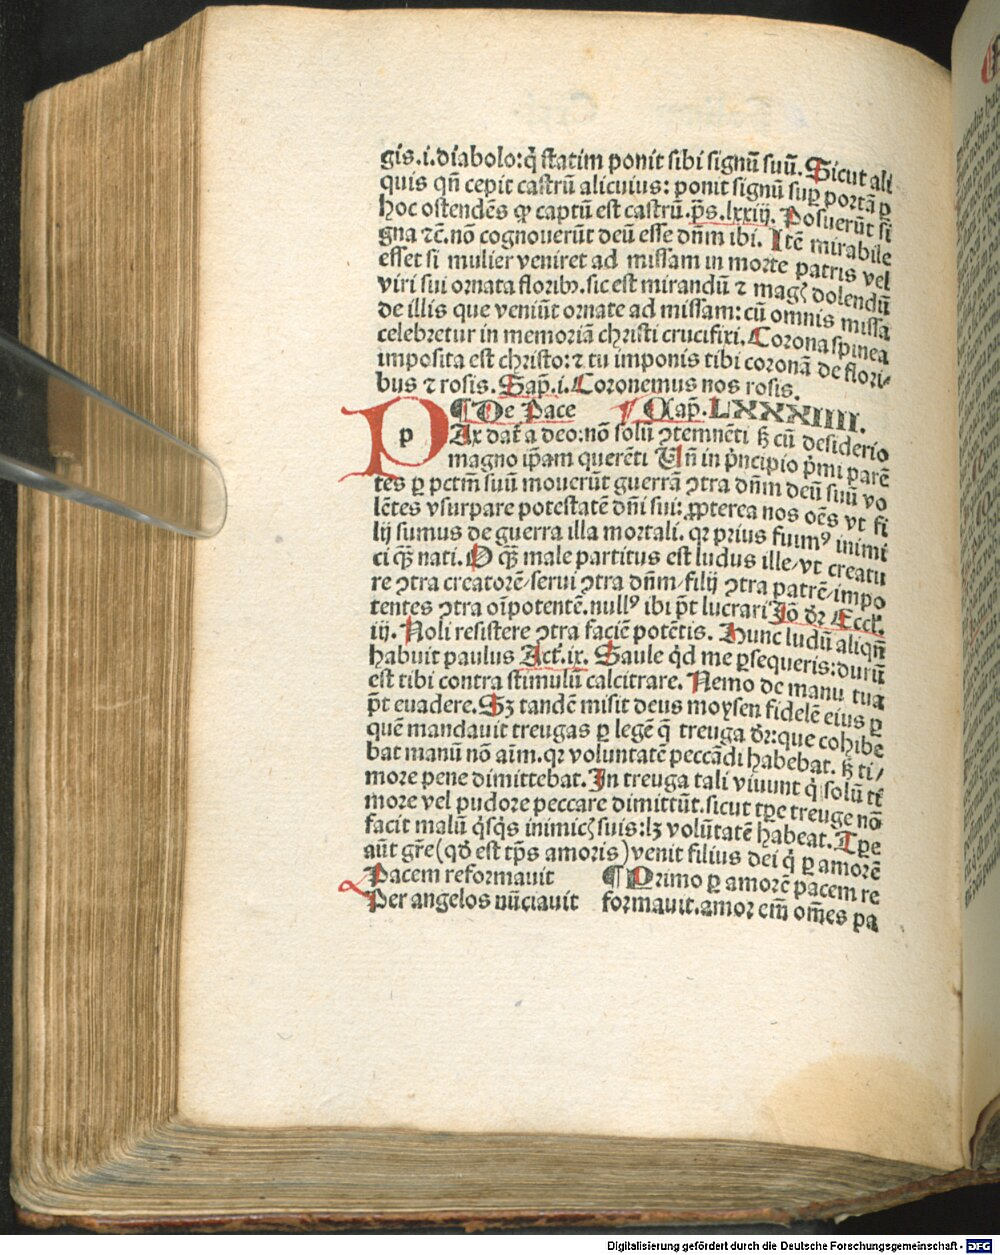 gis.i.diabolo:q̇ statim ponit sibi signũ suũ. Sicut ali
quis qñ cepit castrũ alicuius: ponit signũ suꝑ portã ꝑ
hoc ostendẽs ꝙ captũ est castrũ.p̃s.lxxiij. Posuerũt si
gna ⁊c̃.nõ cognouerũt deũ esse dñm ibi. Itẽ mirabile
esset si mulier veniret ad missam in morte patris vel
viri sui ornata floribꝰ.sic est mirandũ ⁊ magꝭ dolendũ
de illis que veniũt ornate ad missam: cũ omnis missa
celebretur in memoriã christi crucifixi. Corona spinea
imposita est christo: ⁊ tu imponis tibi coronã de flori⸗
bus ⁊ rosis. Sap̃.i. Coronemus nos rosis.
¶ De Pace ¶ Cap̃.LXXXIIII.
p
PAx dat̃ a deo:nõ solũ ↄtemnẽti sꝫ cũ desiderio
magno ip̃am querẽti Uñ in pͥncipio pͥmi parẽ
tes ꝑ pctm̃ suũ mouerũt guerrã ↄtra dñm deũ suũ vo
lẽtes vsurpare potestatẽ dñi sui: ꝓpterea nos oẽs vt fi
lij sumus de guerra illa mortali. qꝛ prius fuimꝰ inimi
ci qꝫ̃ nati. O qꝫ̃ male partitus est ludus ille/vt creatu
re ↄtra creatorẽ/serui ↄtra dñm/filij ↄtra patrẽ/impo
tentes ↄtra oĩpotentẽ.nullꝰ ibi p̃t lucrari Iõ dr̃ Eccl̃.
iij. Noli resistere ↄtra faciẽ potẽtis. Hunc ludũ aliqñ
habuit paulus Act̃.ix. Saule qͥd me ꝑsequeris:durũ
est tibi contra stimulũ calcitrare. Nemo de manu tua
p̃t euadere. Sꝫ tandẽ misit deus moysen fidelẽ eius ꝑ
quẽ mandauit treugas ꝑ legẽ q̃ treuga dr̃:que cohibe
bat manũ nõ aĩm.qꝛ voluntatẽ peccãdi habebat. sꝫ ti/
more pene dimittebat. In treuga tali viuunt qͥ solũ ti
more vel pudore peccare dimittũt.sicut tꝑe treuge nõ
facit malũ qͥsqͥs inimicꝭ suis:lꝫ volũtatẽ habeat. Tꝑe
aũt gr̃e(qd̃ est tp̃s amoris)venit filius dei qͥ ꝑ amorẽ
Pacem reformauit
Per angelos nũciauit
¶ Primo ꝑ amorẽ pacem re
formauit.amor em̃ om̃es pa
Digitalisierung gefördert durch die Deutsche Forschungsgemeinschaft - DFG